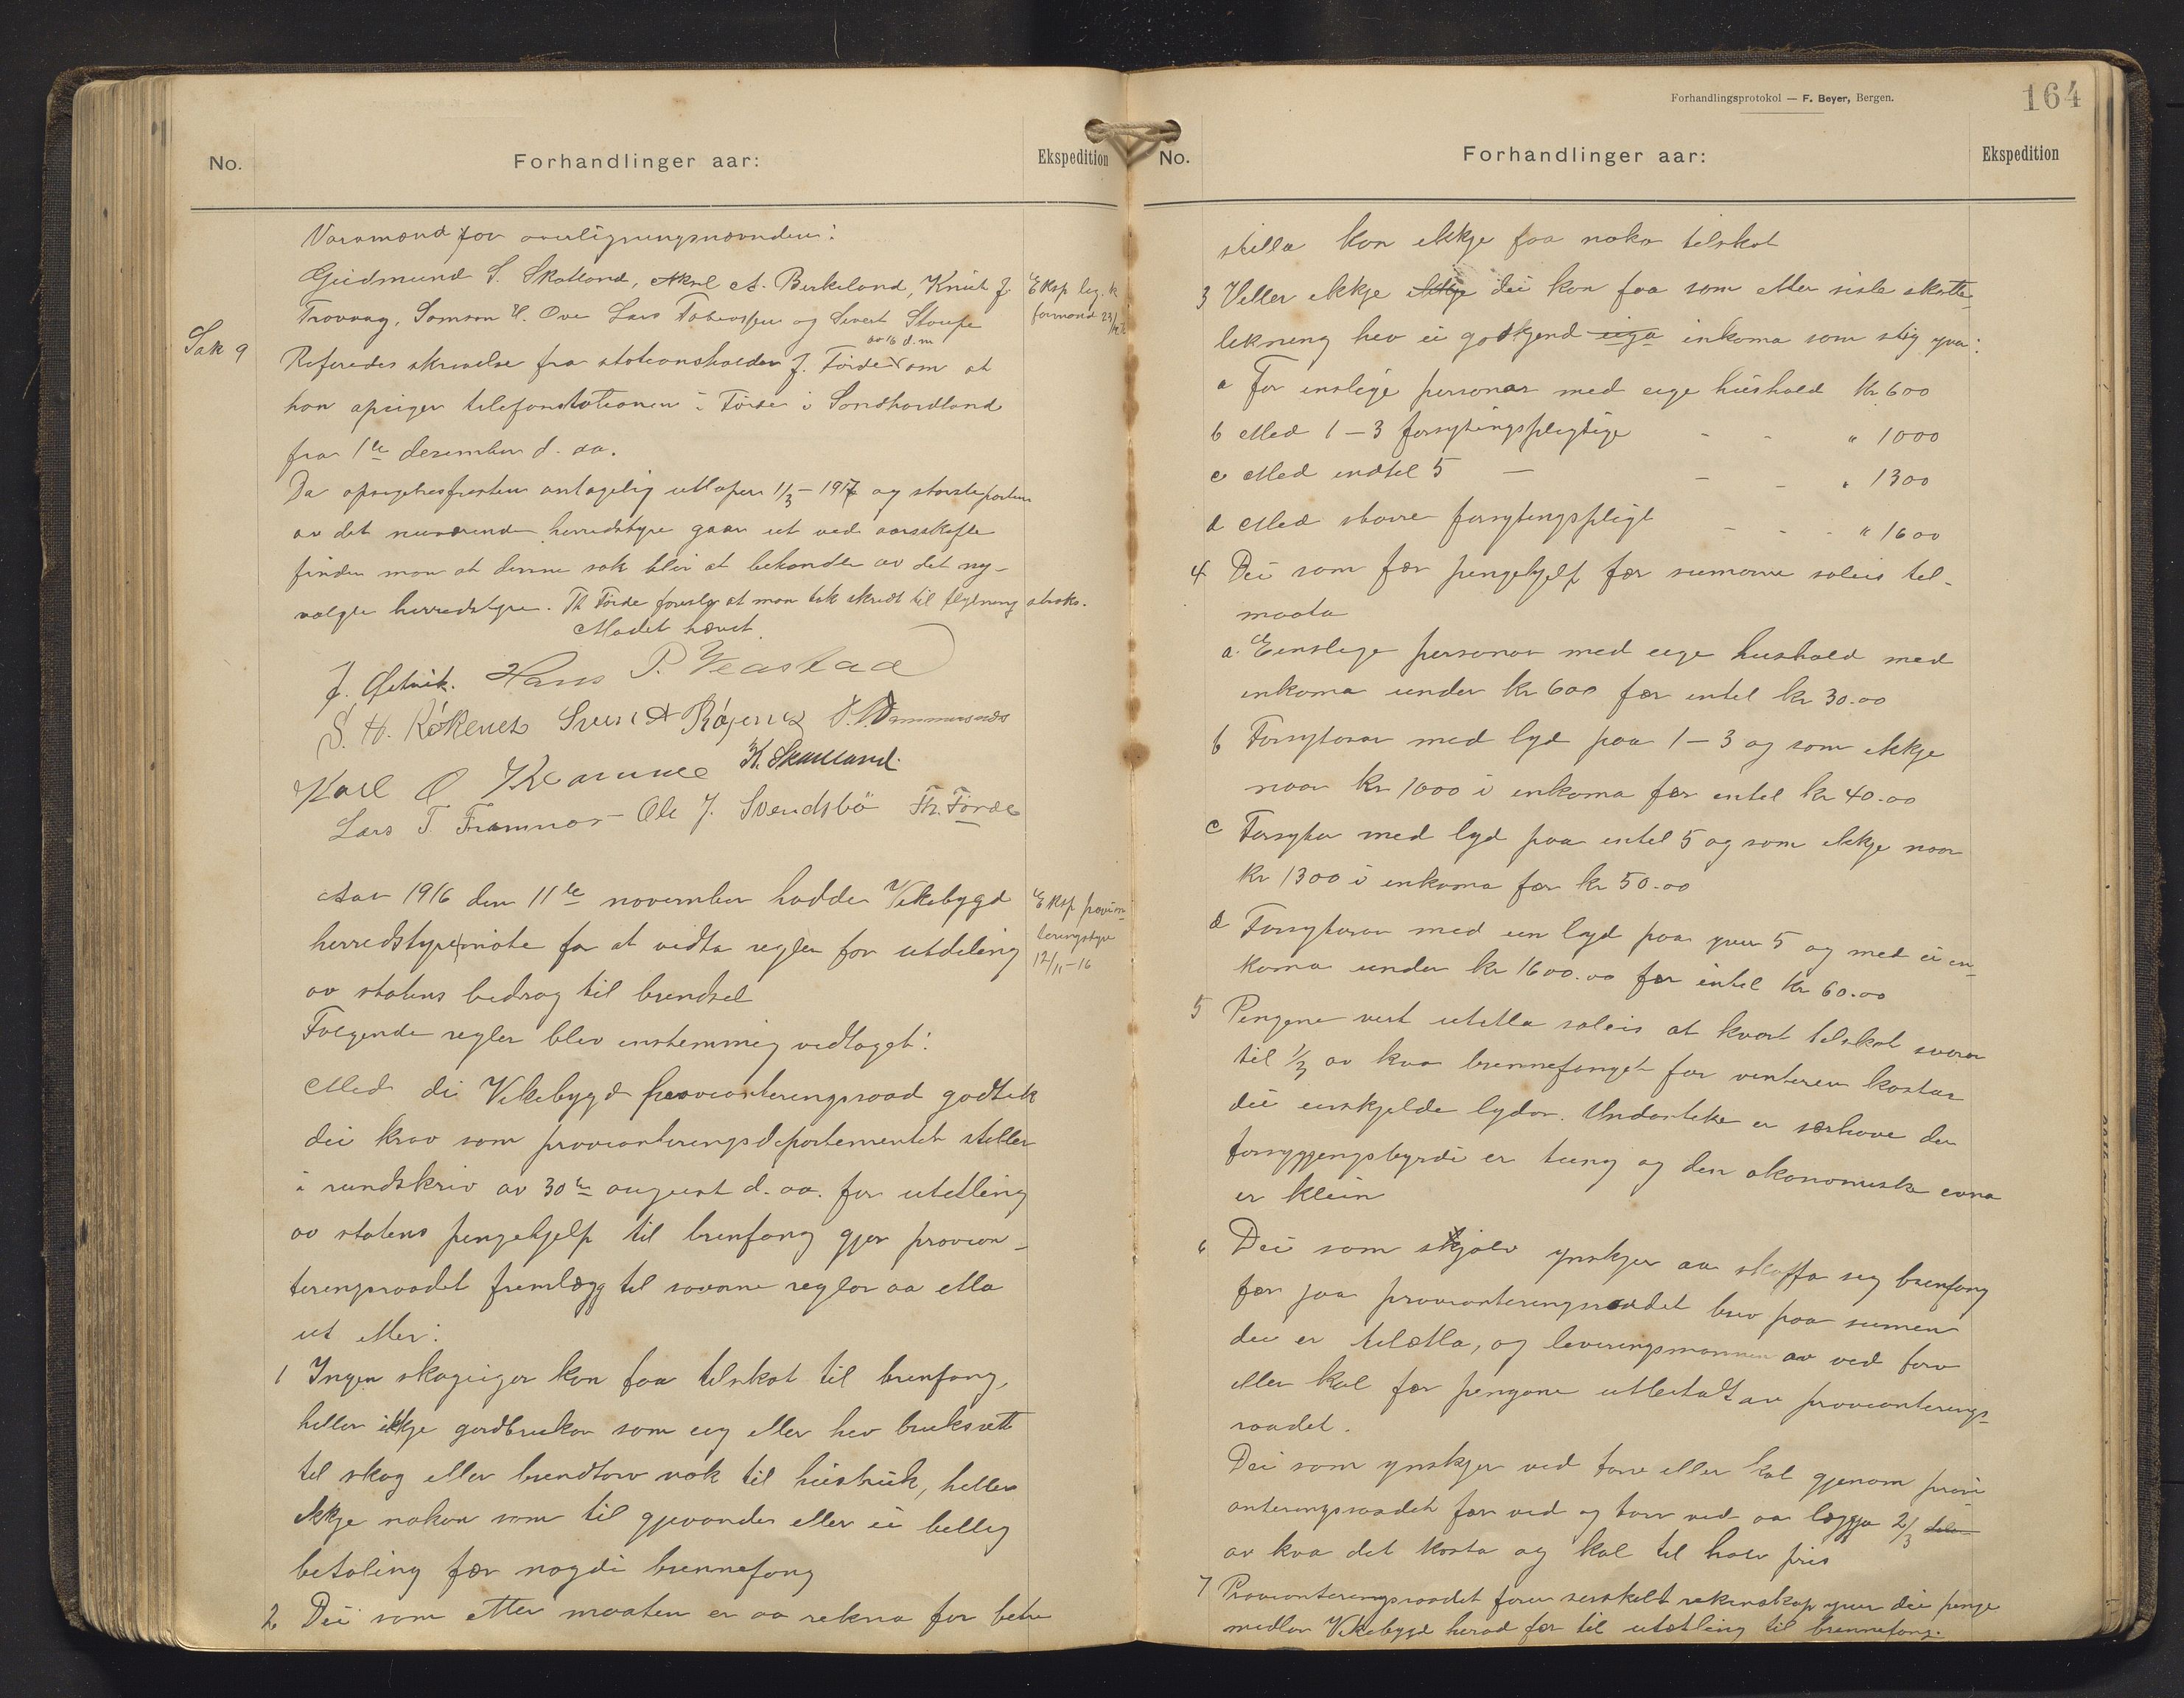 No.
Forhandlinger aar:
Ekspedition
Varamænd for overligningsnævnden:
Gudmund S. Skatland, Aksel A. Birkeland, Knut J.
Trovaag, Samson H. Ove Lars Tobiassen og Sivert Stoupe
Eksp lig. k
formand 23/
Sak 9
av 16 d. m
Referedes skrivelse fra stationsholder J. Førde om at
han opsiger telefonstationen i Førde i Søndhordland
fra 1ste desember d. aa.
Da opsigelsesfristen antagelig utløper 1/3 - 1917 og størsteparten
av det nuværende herredstyre gaar ut ved aarsskifte
finder man at denne sak blir at behandle av det ny-
valgte herredstyre. Th Førde foreslog at man tok skridt til flytning straks.
Mødet hævet.
J. Øctvik. Hans P. Veastad
S. H. Røkenes Sveint Røgenes
Karl O Kvamme K. Skatland.
Lars T. Framnes - Ole J. Svendsbø Th. Førde
Aar 1916 den 11te november hadde Vikebygd
herredstyre møte for at vedta regler for utdeling
av statens bidrag til brendsel
Eksp provian-
teringstyre
12/11-16
Følgende regler blev enstemmig vedtaget:
Med di Vikebygd provianteringsraad godtek
dei krav som provianteringsdepartementet stiller
i rundskriv av 30te august d. aa. for utetling
av statens pengehjelp til brenfang gjer provian-
teringsraadet fremlegg til sovorne reglar aa etla
ut etter:
1 Ingen skogeigar kan faa tilskot til brenfang,
heller ikkje gardbrukar som eig eller hev bruksrett
til skog eller brendtorv nok til husbruk, heller
ikkje nokon som til gjevandes eller ei billig
betaling fær nøgdi brennefang
2 Dei som etter maaten er aa rekna for betre
Forhandlingsprotokol — F. Beyer, Bergen.
164
No.
Forhandlinger aar:
Ekspedition
stilla kan ikkje faa noko tilskot
3 Heller ikkje ikkje dei kan faa som etter siste skatte-
likning hev ei godkjend eiga inkoma som stig yver:
a For einslige personar med eige hushald Kr 600
b Med 1 - 3 forsytingspligtige - - " 1000
c Med indtil 5 — - - " 1300
d Med større forsytingspligt - - - " 1600
4 Dei som fær pengehjelp fær sumarne soleis til-
maata
a. Einslege personar med eige hushald med
inkoma under kr 600 fær intil kr 30.00
b Forsytarar med lyd paa 1 - 3 og som ikkje
naar kr 1000 i inkoma fær intil kr 40.00
c Forsytar med lyd paa intil 5 og som ikkje naar
kr 1300 i inkoma fær kr 50.00
d Forsytarar med ein lyd paa yver 5 og med ei in-
koma under kr 1600.00 fær intil kr 60.00
5 Pengene vert utetla soleis at kvart tilskot svarar
til 1/3 av kva brennefanget for vinteren kostar
dei einskjelde lydar. Undanteke er serhøve der
forsyggjingsbyrdi er tung og den økonomiske evna
er klein
6 Dei som sjølv ynskjer aa skaffa seg brenfang
fær jaa provianteringsraadet brev paa sumen
dei er tilætla, og leveringsmannen av ved torv
eller kol fær pengane utbetalt av provianterings-
raadet.
Dei som ynskjer ved torv eller kol gjenom provi-
anteringsraadet fær ved og torv ved aa leggja 2/3
av kva det kosta og kol til halv pris
7 Provianteringsraadet fører serskilt rekneskap yver dei penge
midlar Vikebygd herad fær til utætling til brennefang.